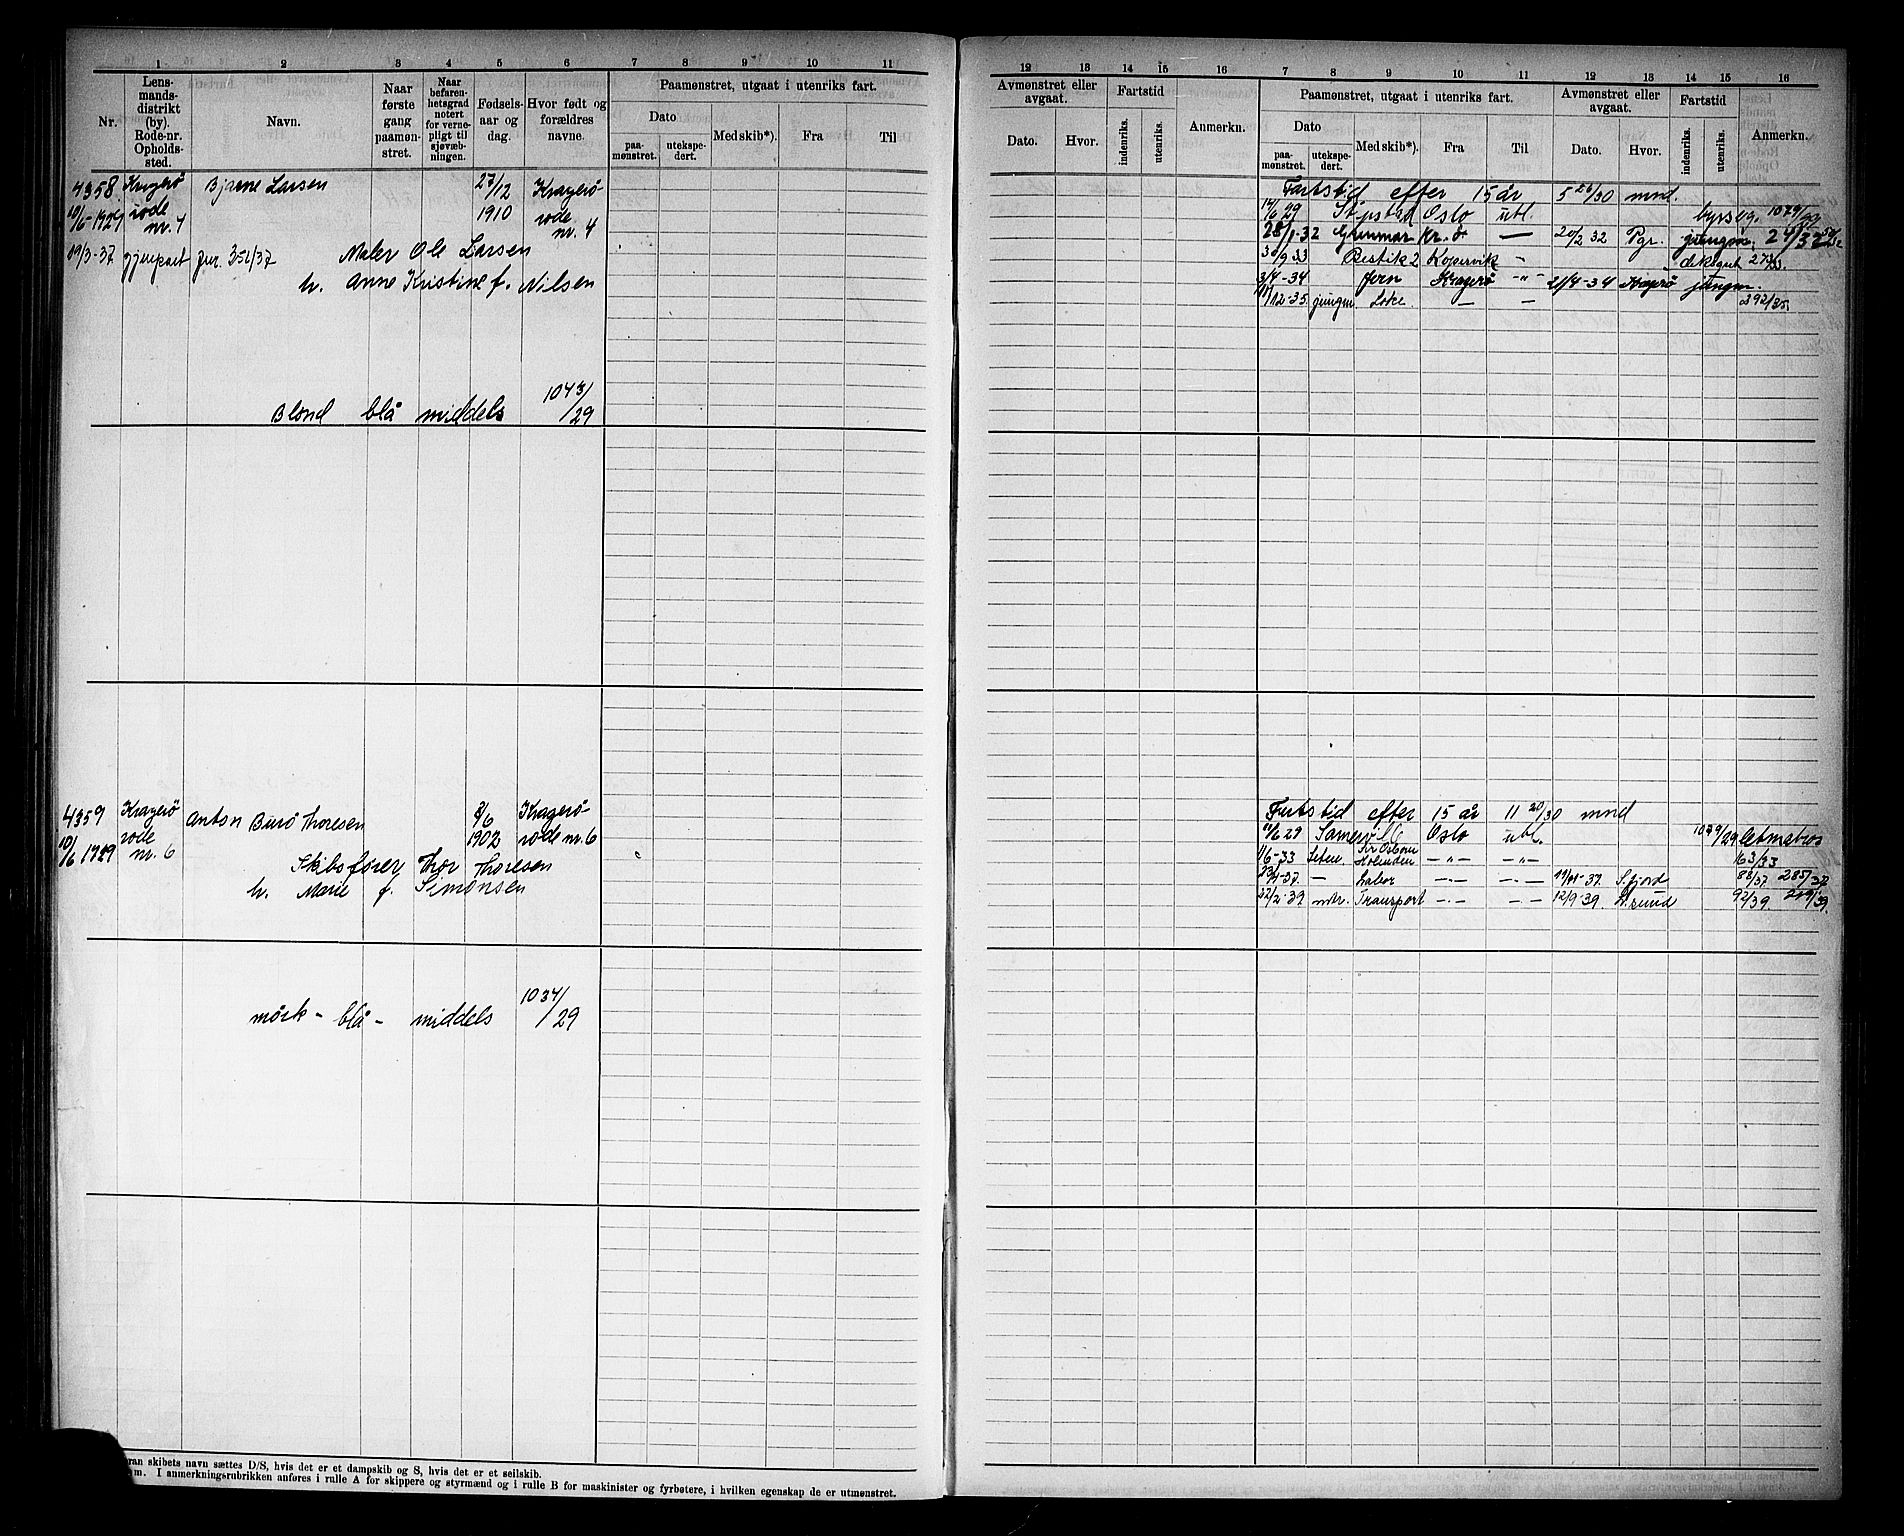 1 2 3 4 5 6 7 8 9 10 11
Nr.
Lens-
mands-
distrikt
(by).
Rode-nr.
Opholds-
sted.
Navn.
Naar
første
gang
paamøn-
stret.
Naar
befaren-
hetsgrad
notert
for verne-
pligt til
sjøvæb-
ningen.
Fødsels-
aar og
dag.
Hvor født og
forældres
navne.
Paamønstret, utgaat i utenriks fart.
Dato
paa-
mønstret.
utekspe-
dert.
Med skib*).
Fra
Til
4358 Kragerö Bjarne Larsen 27/12 Kragerö
10/6-1929 rode nr. 4 1910 rode nr. 4
19/3-37 jnr. 352/37 Maler Ole Larsen
h. Anne Kristine f. Nilsen
Blond blå middels 1043/29
4359 Kragerö Anton Burö Thoresen 2/6 Kragerö
10/6 1929 rode nr. 6 1902 rode nr. 6
Skibsfører Thor Thoresen
h. Marie f. Simonsen
mörk - blå - middels 1034/29
ran skibets navn sættes D/S, hvis det er et dampskib og S, hvis det er et seilskib.
m. I anmerkningsrubrikken anføres i rulle A for skippere og styrmænd og i rulle B for maskinister og fyrbøtere, i hvilken egenskap de er utmønstret.
12 13 14 15 16 7 8 9 10 11 12 13 14 15 16
Avmønstret eller
avgaat.
Dato.
Hvor.
Fartstid
indenriks.
utenriks.
Anmerkn.
Paamønstret, utgaat i utenriks fart.
Dato
paa-
mønstret.
utekspe-
dert.
Med skib*).
Fra
Til
Avmønstret eller
avgaat.
Dato.
Hvor.
Fartstid
indenriks.
utenriks.
Anmerkn.
Fartstid efter 15 år 5 26/30 mnd.
14/6 29 Oslo ubl. 1079/29
28/1-32 Gunnar Kr. ö — 20/2 32 Pgr. jungm. 24/32
30/9 33 Kopervik -
3/4-34 Jern Kragerö -"- 21/4-34 Kragerö jungm.
11/12-35 jungm Loke. — — 292/35.
Fartstid efter 15 år 11 20/30 mnd
11/6 29 Oslo ubl. 1079/29 letmatros
1/6-33 Holmden -"- -"- 163/33
— Labor -.- -.- 19/11-37. S.fjord 88/37. 285/37.
22/2-39. mtr. Transport -.- -.- 12/9-39. 92/39. 219/39.